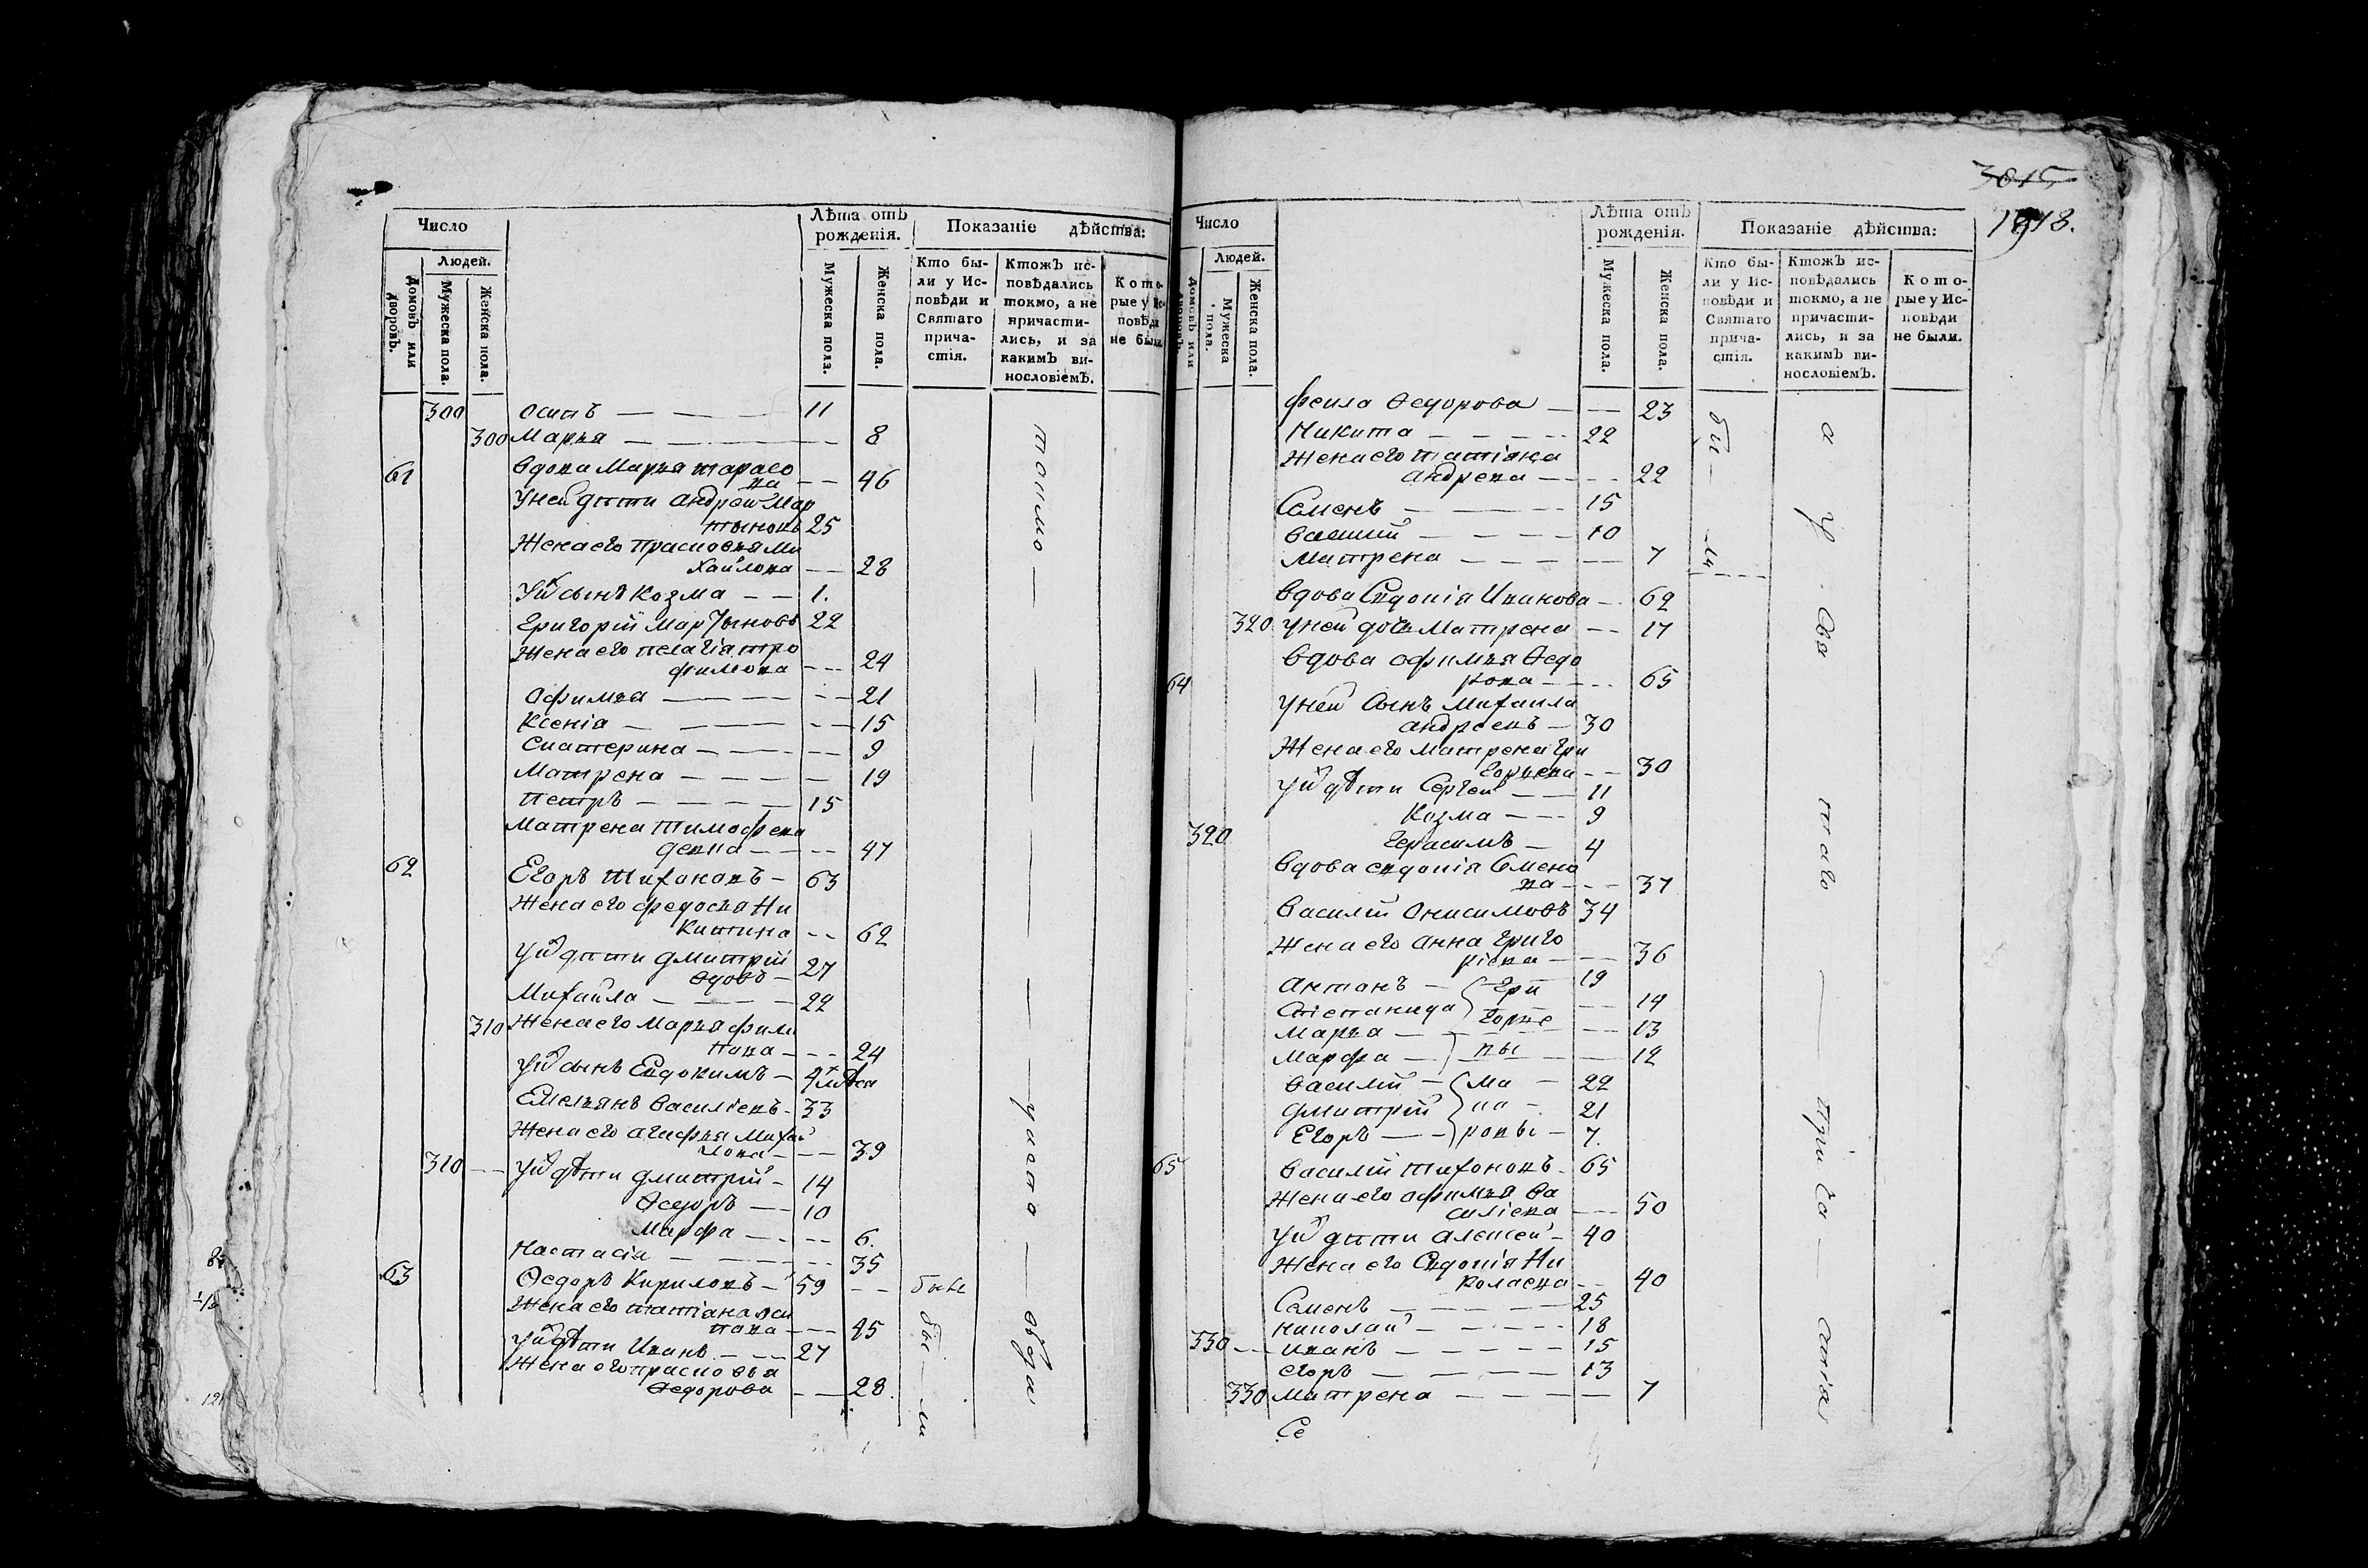 Число
Людей.
Домовъ или дворовъ.
Мужеска пола.
Женска пола.
Лѣта отъ рожденія.
Мужеска пола.
Женска пола.
Показаніе дѣйства:
Кто были у Исповѣди и Святаго причастія.
Ктожъ исповѣдались токмо, а не причастились, и за какимъ винословіемъ.
Которые у Исповѣди не были.
300 осипъ — — — 11
300 Марья — — — 8
61 вдова Марья тарасо
ва — — 46
уней дѣти андрей Мар
тыновъ 25
Жена его Прасковья Ми
хайлова — 28
уй сынъ Козма — — 1.
Григорій Мартыновъ 22
Жена его пелагія тро
фимова — — 24
Офимья — — — 21
Ксенія — — — 15
Екатерина — — — 9
Матрена — — — 19
Петръ — — — 15
Матрена Тимофеева
— — 47
62 Егоръ Тихоновъ — 63
Жена его федосья Ни
китина — — 62
уй дѣти дмитрій
27
Михаила — — — 22
310 Жена его Марья фили
пова — — 24
уй сынъ Евдокимъ —
Емельянъ Василіевъ — 33
Жена его агафья Михай
лова — — 39
310 — уй дѣти дмитрій — 14
Ѳедоръ — — 10
Марфа — — 6.
Настасія — — — 35
63 Ѳедоръ Кириловъ — 59 — —
Жена его татіана
пова — — 45
уй дѣти Иванъ — — 27
Жена его прасковья
Ѳедорова — — 28.
токмо — — — — — — — — — исповѣда
бы — ли
3015
1918.
Число
Людей.
Домовъ или дворовъ.
Мужеска пола.
Женска пола.
Лѣта отъ рожденія.
Мужеска пола.
Женска пола.
Показаніе дѣйства:
Кто были у Исповѣди и Святаго причастія.
Ктожъ исповѣдались токмо, а не причастились, и за какимъ винословіемъ.
Которые у Исповѣди не были.
фекла Ѳедорова — — 23
Никита — — — 22
Жена его татіана
андреева — — 22
Семенъ — — — 15
василій — — — 10
Матрена — — — 7
вдова Евдокія Иванова — 62
320 уней дочь Матрена — — 17
64 вдова офимья Ѳедо
рова — — 65
уней Сынъ Михаила
андреевъ — 30
Жена его матрена гри
горьева — — 30
уй дѣти Сергей — — 11
Козма — — 9
320 герасимъ — 4
вдова евдокія Семено
ва — — 37
Василій Онисимовъ 34
Жена его анна григо
ріева — — 36
антонъ — гри 19
Степанида горье — 14
Марья — — 13
Марфа — вы — 12
василій — ма — 22
дмитрій — ка — 21
Егоръ — — ровы — 7.
65 Василій тихоновъ — 65
Жена его офимья ва
силіева — — 50
уй дѣти алексей — 40
Жена его Евдокія Ни
колаева — — 40
Семенъ — — — 25
николай — — — 18
330 — иванъ — — — 15
егоръ — — — 13
330 Матрена — — — 7
Се
бы — ли
таго — — прича — стія